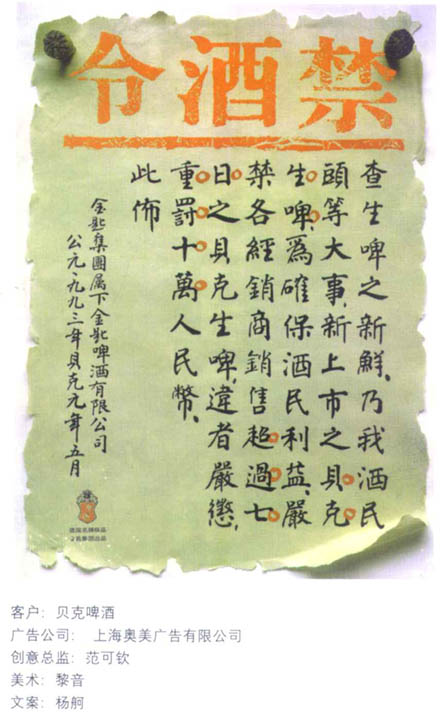 禁酒令
查生啤之新鮮,乃我酒民
頭等大事,新上市之貝克
生啤,爲確保酒民利益,嚴
禁各經銷商銷售超過七
日之貝克生啤,違者嚴懲,
重罰十萬人民幣、
此佈
金匙集團属下金匙啤酒有限公司
公元一九九三年貝克元年五月
客户：贝克啤酒
广告公司：上海奥美广告有限公司
创意总监：范可钦
美术：黎音
文案：杨舸